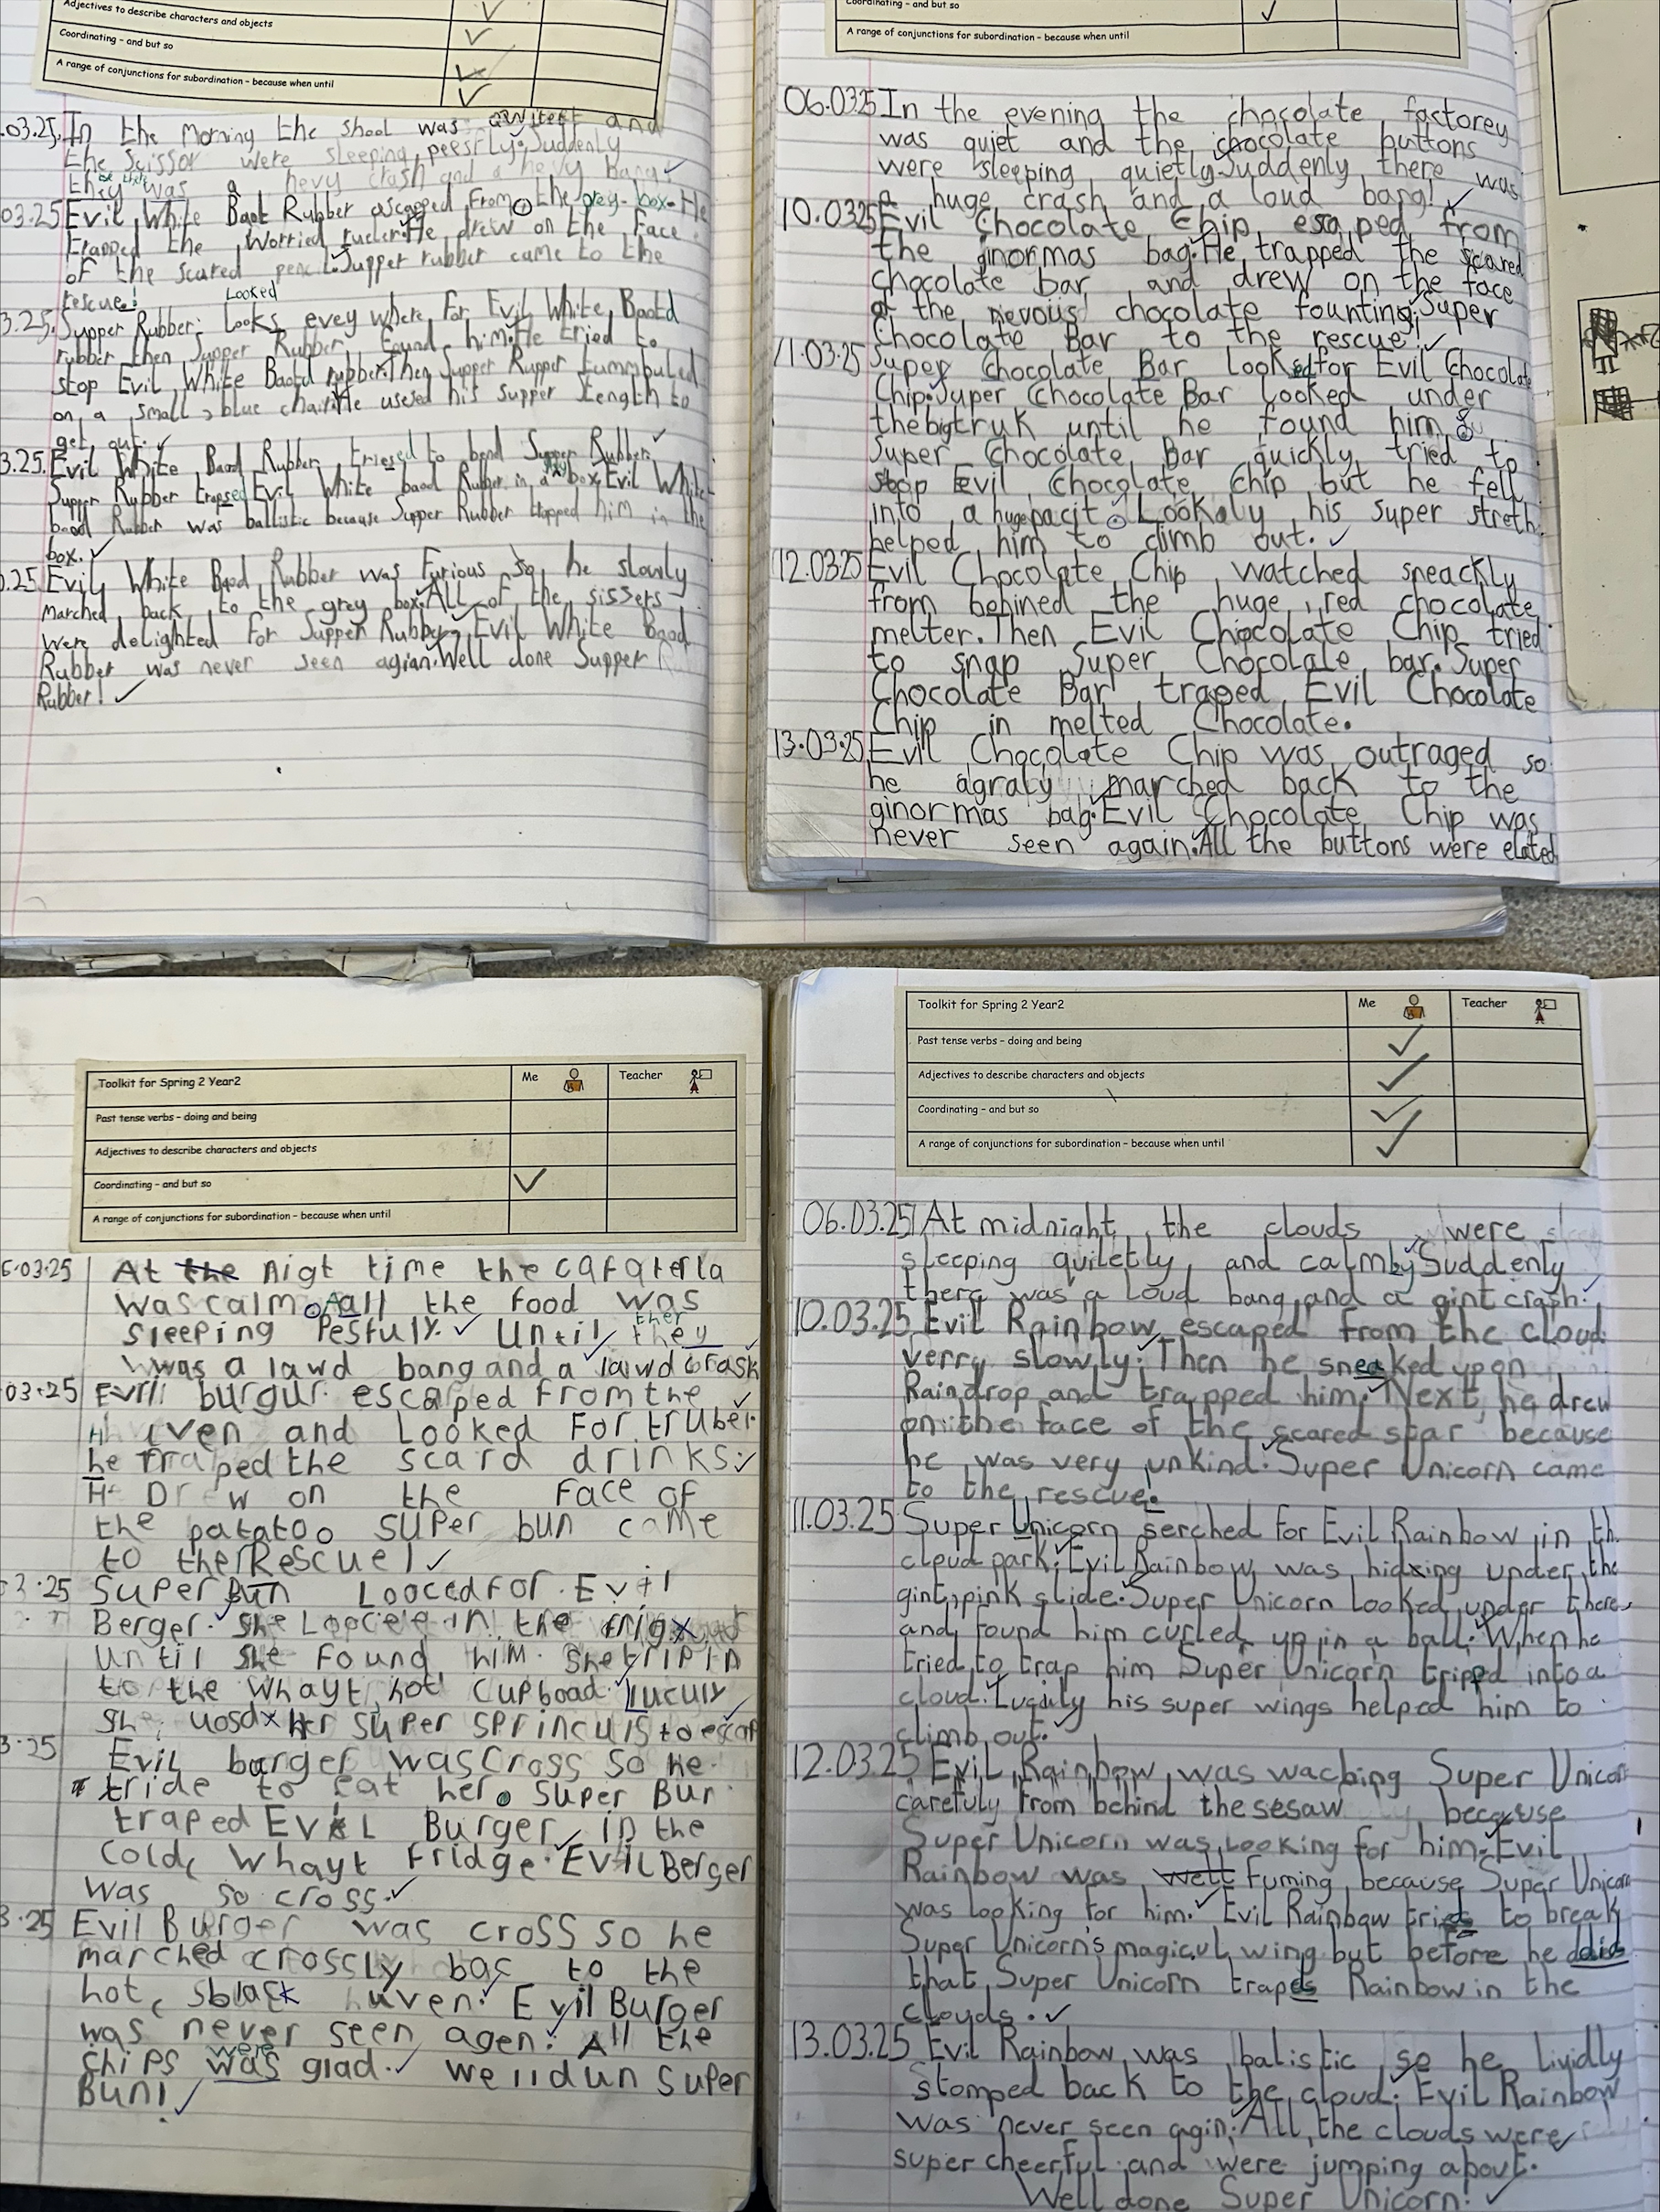 Adjectives to describe characters and objects
Coordinating - and but so
A range of conjunctions for subordination - because when until
.03.25. In the morning the shool was and
the scissor were sleeping peesfly. Suddenly
they was a hevy crash and a hevy bang!
03.25 Evil White Baot Rubber ascapped From the grey box. He
trapped the worried ruler. He drew on the face
of the scared pencil. Supper rubber came to the
rescue!
Looked
3.25. Supper Rubber Looks evey where for Evil White Baotd
rubber then Supper Rubber found him. He tried to
stop Evil White Baotd rubber. Then Supper Rupper tummbuled
on a small, blue chair. He useed his supper stength to
get out.
3.25. Evil White Baod Rubber triesed to bend Supper Rubber.
Supper Rubber trapsed Evil White baod Rubber in a box. Evil White
baod Rubber was ballistic because Supper Rubber trapped him in the
box.
.25 Evil White Baod Rubber was Furious so he slowly
marched back to the grey box. All of the sissers
were delighted for Supper Rubber. Evil White Baod
Rubber was never seen agian. Well done Supper
Rubber!
Coordinating - and but so
A range of conjunctions for subordination - because when until
06.03.25 In the evening the chocolate factorey
was quiet and the chocolate buttons
were sleeping quietly. Suddenly there was
a huge crash and a loud bang!
10.03.25 Evil Chocolate Chip escaped from
the ginormas bag. He trapped the scared
chocolate bar and drew on the face
of the nevous chocolate founting. Super
Chocolate Bar to the rescue!
11.03.25 Super Chocolate Bar Looked for Evil Chocolate
Chip. Super Chocolate Bar Looked under
the big truk until he found him.
Super Chocolate Bar quickly tried to
stop Evil Chocolate Chip but he fell
into a huge pacit. Lookaly his super streth
helped him to climb out.
12.03.25 Evil Chocolate Chip watched sneackly
from behined the huge, red chocolate
melter. Then Evil Chocolate Chip tried
to snap Super Chocolate bar. Super
Chocolate Bar traped Evil Chocolate
Chip in melted Chocolate.
13.03.25 Evil Chocolate Chip was outraged so
he agraly marched back to the
ginormas bag. Evil Chocolate Chip was
never seen again. All the buttons were elated
Toolkit for Spring 2 Year2 Me Teacher
Past tense verbs - doing and being
Adjectives to describe characters and objects
Coordinating - and but so
A range of conjunctions for subordination - because when until
6.03.25 At the nigt time the cafaterla
was calm. All the food was
sleeping Pesfuly. Until they
ther
was a lawd bang and a lawd crash
03.25 Evrli burgur escaped from the
uven and Looked For truber.
he traped the scard drinks.
He Drew on the face of
the patatoo super bun came
to the Rescue!
03.25 Super Bun Looced for Evil
Berger. She Loocee in the
until she found him. She trip in
to the whayt, hot cupboad. Luculy
she uosd her super sprinculs to escap
3.25 Evil burger was cross so he
tride to eat her. Super Bun
traped EvIL Burger in the
cold, whayt Fridge. EvilBerger
was so cross.
3.25 Evil Burger was cross so he
marched crossly bac to the
hot, sblack huven. Evil Burger
was never seen agen. All the
were
chips was glad. Well dun Super
Bun!
Toolkit for Spring 2 Year2 Me Teacher
Past tense verbs - doing and being
Adjectives to describe characters and objects
Coordinating - and but so
A range of conjunctions for subordination - because when until
06.03.25 At midnight, the clouds were
sleeping quiletly and calmly. Suddenly
there was a Loud bang and a gint crash.
10.03.25 Evil Rainbow escaped from the cloud
verry slowly. Then he sneaked upon
Raindrop and trapped him. Next, he drew
on the face of the scared star because
he was very unkind. Super Unicorn came
to the rescue!
11.03.25 Super Unicorn serched for Evil Rainbow in th
cloud park. Evil Rainbow was hidxing under the
gint, pink slide. Super Unicorn Looked under there
and found him curled up in a ball. When he
tried to trap him Super Unicorn tripped into a
cloud. Luckily his super wings helped him to
climb out.
12.03.25 Evil Rainbow was waching Super Unicorn
carefuly from behind the sesaw because
Super Unicorn was Looking for him. Evil
Rainbow was well Fuming because Super Unicorn
was looking for him. Evil Rainbow tries to break
Super Unicorn's magicul wing but before he did
that Super Unicorn trapes Rainbow in the
clouds.
13.03.25 Evil Rainbow was balistic so he lividly
stomped back to the cloud. Evil Rainbow
was never seen agin. All the clouds were
super cheerful and were jumping about.
Well done Super Unicorn!